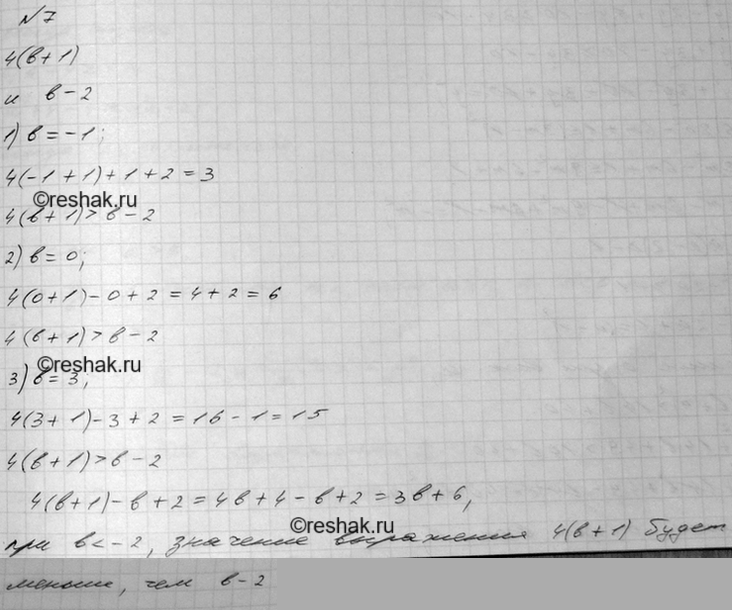 №7
4(в+1)
и в-2
1) в=-1;
4(-1+1)+1+2=3
©reshak.ru
4(в+1)>в-2
2) в=0;
4(0+1)-0+2=4+2=6
4(в+1)>в-2
©reshak.ru
3) в=3;
4(3+1)-3+2=16-1=15
4(в+1)>в-2
4(в+1)-в+2=4в+4-в+2=3в+6,
©reshak.ru
при в<-2, значение выражения 4(в+1) будет
меньше, чем в-2